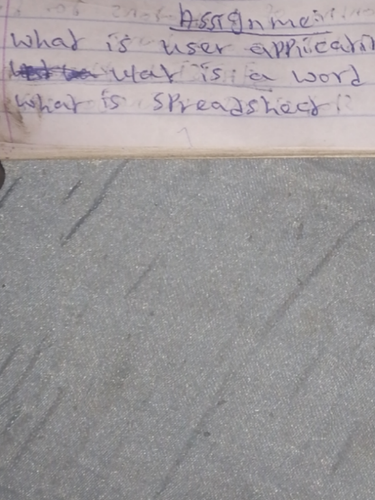 Assignmen
What is user applicati
wat is a word
What is spreadsheet